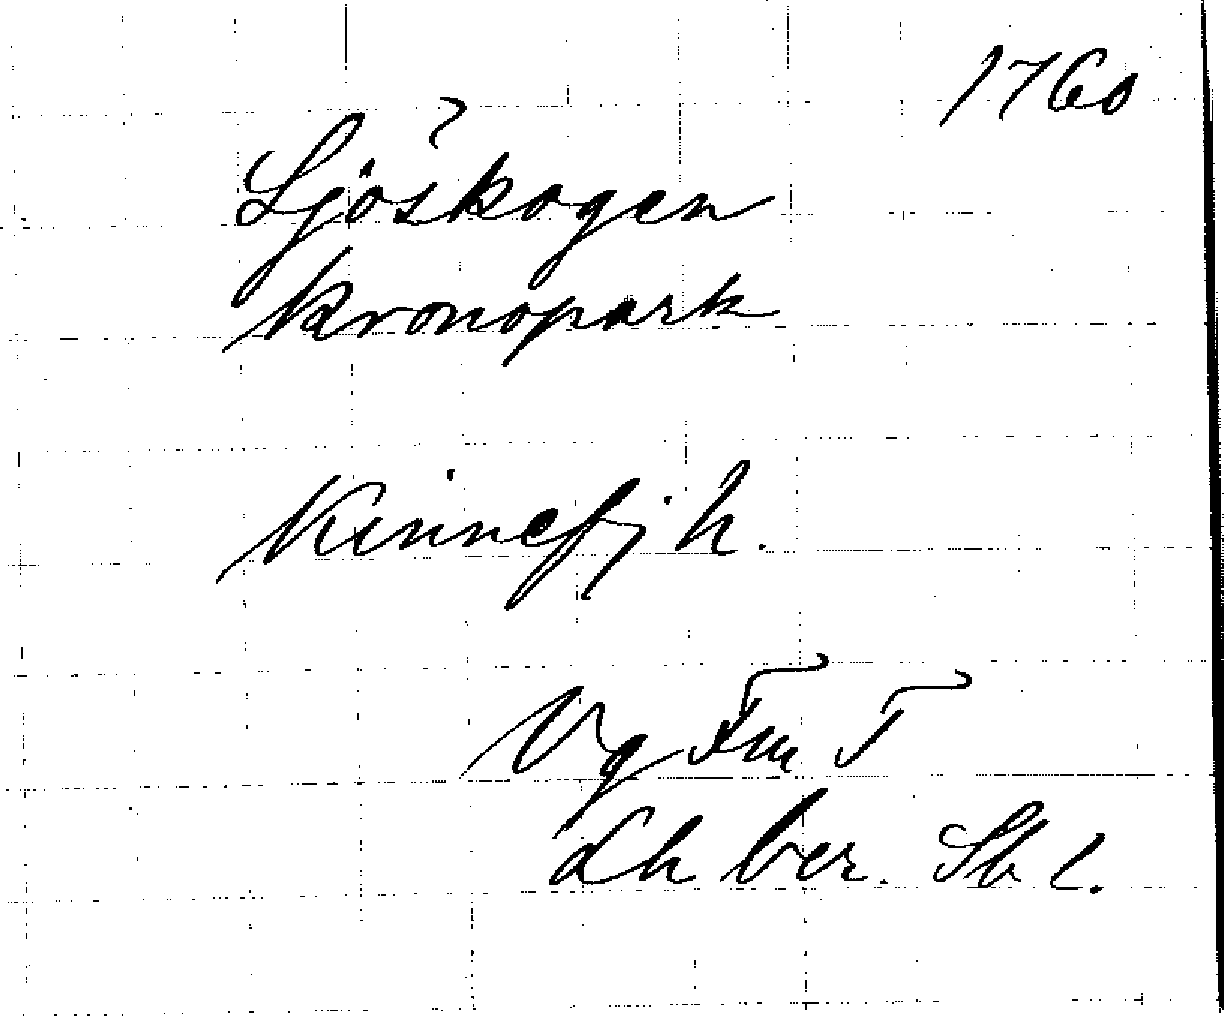 1760
?
Sjöskogen
kronopark
Kinnefj h.
Vg Fm T
Lh ber. Sk l.